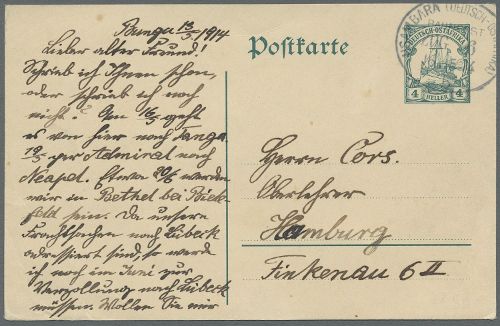 Bunga 13/5 1914
Lieber alter Freund!
Schrieb ich Ihnen schon,
oder schrieb ich noch
nicht? Am 16/5 geht
es von hier nach Tanga.
19/5 per Admiral nach
Neapel. Etwa 20/6 werden
wir in Bethel bei Biele-
feld sein. Da unsere
Frachtsachen nach Lübeck
adressiert sind, so werde
ich noch im Juni zur
Verzollung nach Lübeck
müssen. Wollen Sie mir
Postkarte
DEUTSCH-OSTAFRIKA
4 HELLER 4
Herrn Cors.
Oberlehrer
Hamburg
Finkenau 6 II